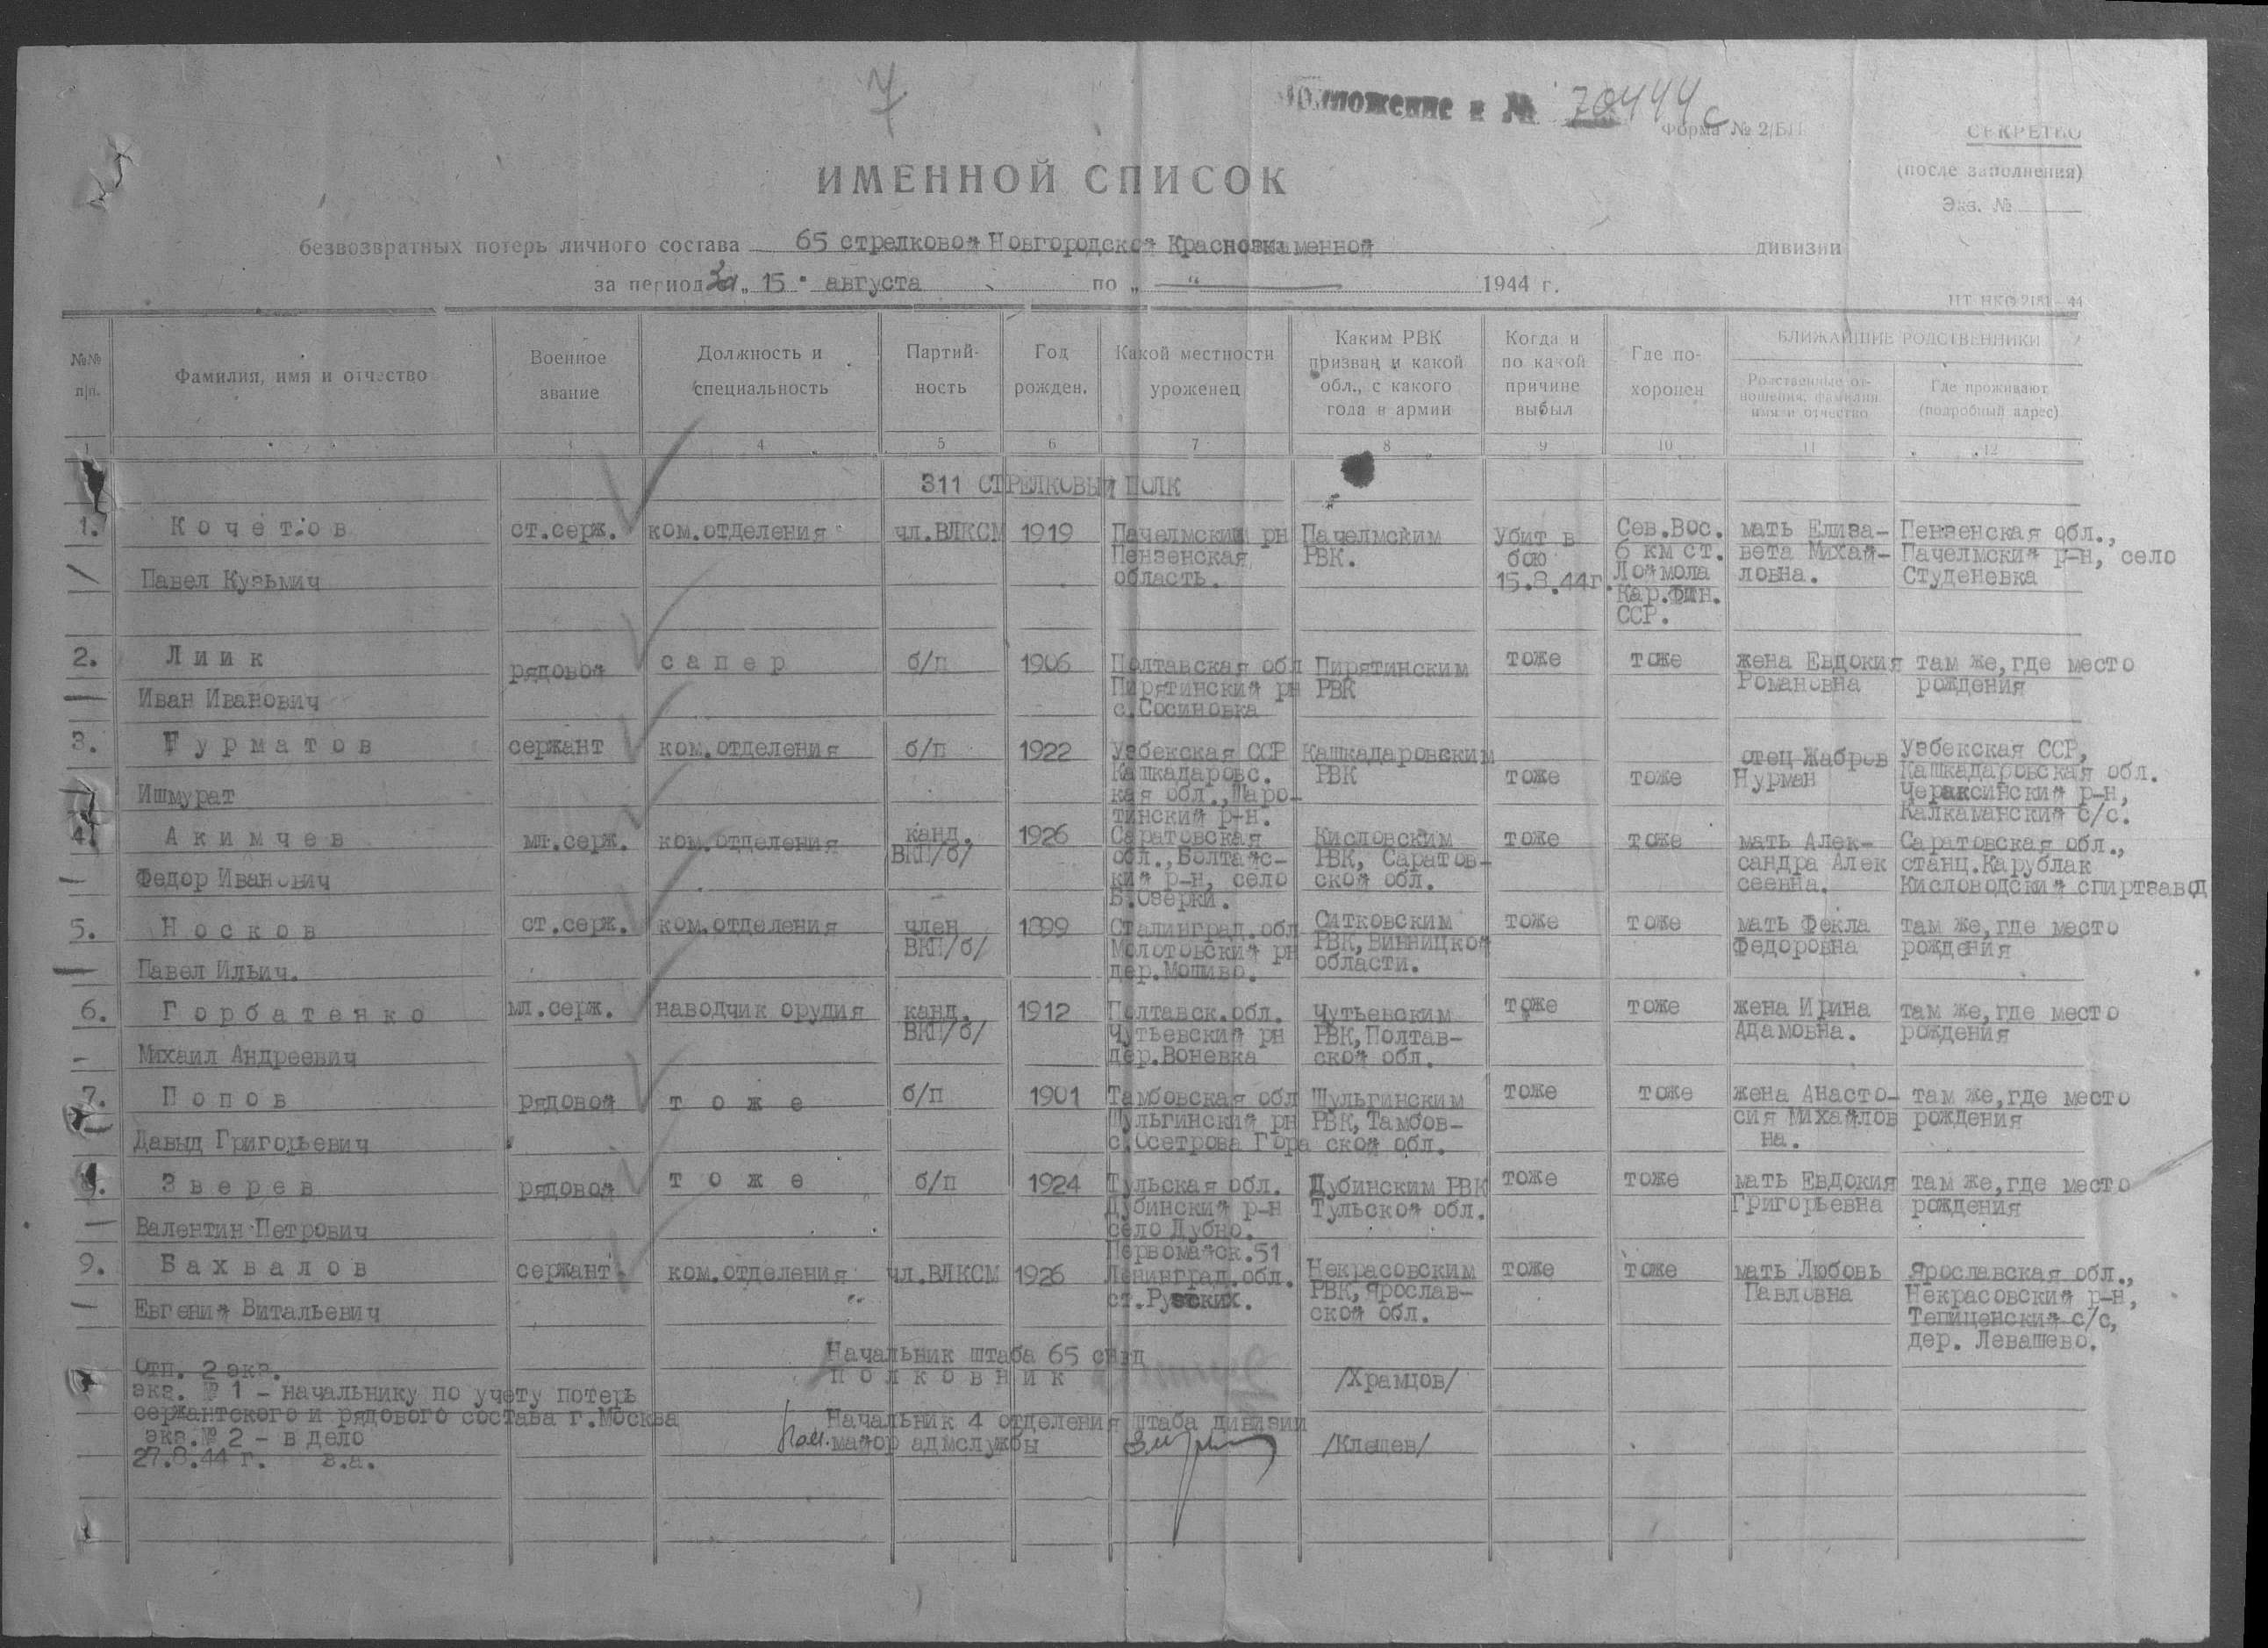 7
Приложение к № 70444с
Форма № 2/БП
СЕКРЕТНО
(после заполнения)
Экз. №
ИМЕННОЙ СПИСОК
безвозвратных потерь личного состава 65 стрелковой Новгородской Краснознаменной дивизии
за период За „ 15 " августа по „ " 1944 г.
№№ п/п.
Фамилия, имя и отчество
Военное звание
Должность и специальность
Партий-
ность
Год рожден.
Какой местности уроженец
Каким РВК
призван и какой
обл., с какого
года в армии
Когда и
по какой
причине
выбыл
Где по-
хоронен
БЛИЖАЙШИЕ РОДСТВЕННИКИ
Родственные от-
ношения, фамилия
имя и отчество
Где проживают
(подробный адрес)
1 2 3 4 5 6 7 8 9 10 11 12
311 СТРЕЛКОВЫЙ ПОЛК
1. Кочетов
Павел Кузьмич
ст.серж.
ком.отделения
чл.ВЛКСМ
1919
Пачелмский рн
Пензенская
область.
Пачелмским
РВК.
убит в
бою
15.8.44г.
Сев.Вос.
6 км ст.
Лоймола
Кар.Фин.
ССР.
мать Елиза-
вета Михай-
ловна.
Пензенская обл.,
Пачелмский р-н, село
Студеневка
2. Лиик
Иван Иванович
рядовой
сапер
б/п
1906
Полтавская обл
Пирятинский рн
с.Сосиновка
Пирятинским
РВК
тоже
тоже
жена Евдокия
Романовна
там же,где место
рождения
3. Нурматов
Ишмурат
сержант
ком.отделения
б/п
1922
Узбекская ССР
Кашкадаровс.
кая обл.,Шаро-
тинский р-н.
Кашкадаровским
РВК
тоже
тоже
отец Жабров
Нурман
Узбекская ССР,
Кашкадаровская обл.
Чераксинский р-н,
Калкаманский с/с.
4. Акимчев
Федор Иванович
мл.серж.
ком.отделения
канд.
ВКП/б/
1926
Саратовская
обл.,Болтайс-
кий р-н, село
Б.Озерки.
Кисловским
РВК, Саратов-
ской обл.
тоже
тоже
мать Алек-
сандра Алек
сеевна.
Саратовская обл.,
станц.Карублак
Кисловодский спиртзавод
5. Носков
Павел Ильич.
ст.серж.
ком.отделения
член
ВКП/б/
1899
Сталинград.обл
Молотовский рн
дер.Мошиво.
Ситковским
РВК,Винницкой
области.
тоже
тоже
мать Фекла
Федоровна
там же,где место
рождения
6. Горбатенко
Михаил Андреевич
мл.серж.
наводчик орудия
канд.
ВКП/б/
1912
Полтавск.обл.
Чутьевский рн
дер.Воневка
Чутьевским
РВК,Полтав-
ской обл.
тоже
тоже
жена Ирина
Адамовна.
там же,где место
рождения
7. Попов
Давыд Григорьевич
рядовой
тоже
б/п
1901
Тамбовская обл
Шульгинский рн
с.Осетрова Гора
Шульгинским
РВК,Тамбов-
ской обл.
тоже
тоже
жена Анасто-
сия Михайлов
на.
там же,где место
рождения
Зверев
Валентин Петрович
рядовой
тоже
б/п
1924
Тульская обл.
Дубинский р-н
село Дубно.
Дубинским РВК
Тульской обл.
тоже
тоже
мать Евдокия
Григорьевна
там же,где место
рождения
9. Бахвалов
Евгений Витальевич
сержант
ком.отделения
чл.ВЛКСМ
1926
Первомайск.51
Ленинград.обл.
Некрасовским
РВК,Ярослав-
ской обл.
тоже
тоже
мать Любовь
Павловна
Ярославская обл.,
Некрасовский р-н,
Тепиценский с/с,
дер. Левашево.
Отп. 2 экз.
экз. № 1 - начальнику по учету потерь
сержантского и рядового состава г.Москва
экз.№ 2 - в дело
27.8.44 г. в.а.
Начальник штаба 65 снкд
полковник /Храмцов/
Начальник 4 отделения штаба дивизии
майор адмслужбы /Клещев/